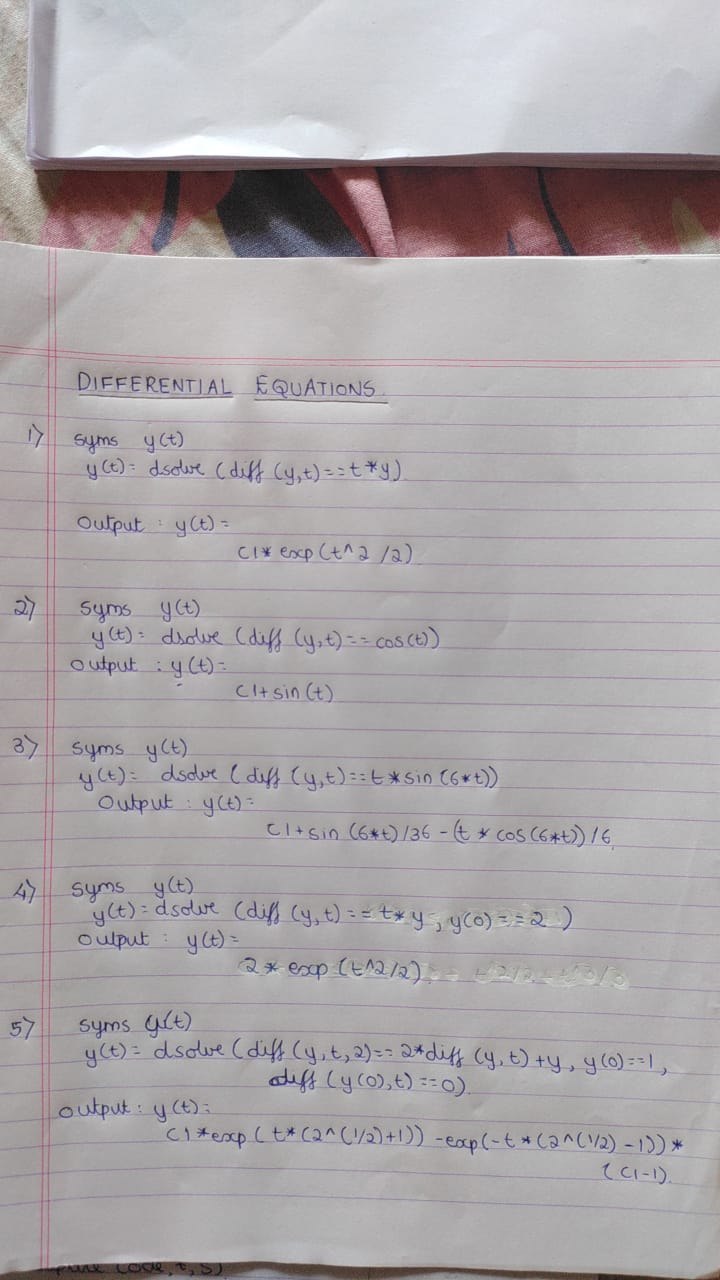 DIFFERENTIAL EQUATIONS.
1) Syms y(t)
y(t)= dsolve (diff (y,t)==t*y)
Output : y(t)=
C1* exp(t^2 /2)
2) Syms y(t)
y(t)= dsolve (diff (y,t)==cos(t))
Output : y(t)=
C1+sin(t)
3) Syms y(t)
y(t)= dsolve (diff (y,t)==t*sin(6*t))
Output : y(t)=
C1+sin(6*t)/36 -(t * cos(6*t))/6
4) Syms y(t)
y(t)=dsolve (diff (y,t)==t*y, y(0)==2 )
Output : y(t)=
2* exp(t^2/2)
5) Syms y(t)
y(t)= dsolve (diff (y,t,2)==2*diff (y,t)+y, y(0)==1,
diff (y(0),t)==0)
output: y(t)=
C1*exp(t*(2^(1/2)+1)) -exp(-t*(2^(1/2)-1))*
(C1-1).